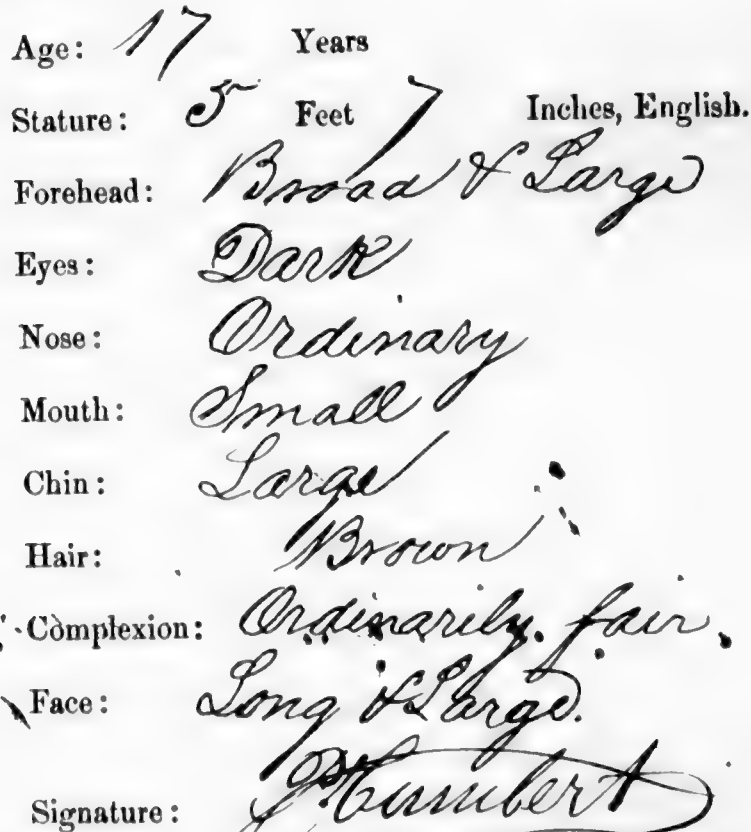 Age: 17 Years
Stature: 5 Feet 7 Inches, English.
Forehead: Broad & Large
Eyes: Dark
Nose: Ordinary
Mouth: Small
Chin: Large
Hair: Brown
Complexion: Ordinarily fair
Face: Long & Large.
Signature: